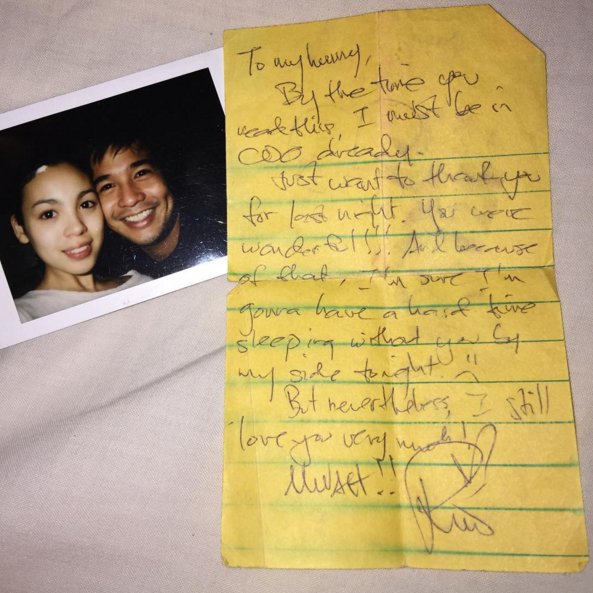 To my hunny,
By the time you
read this, I must be in
CDO already.
Just want to thank you
for last night. You were
wonderful!!! And because
of that, I'm sure I'm
gonna have a hard time
sleeping without you by
my side tonight.
But nevertheless, I still
love you very much!
MWAH!!